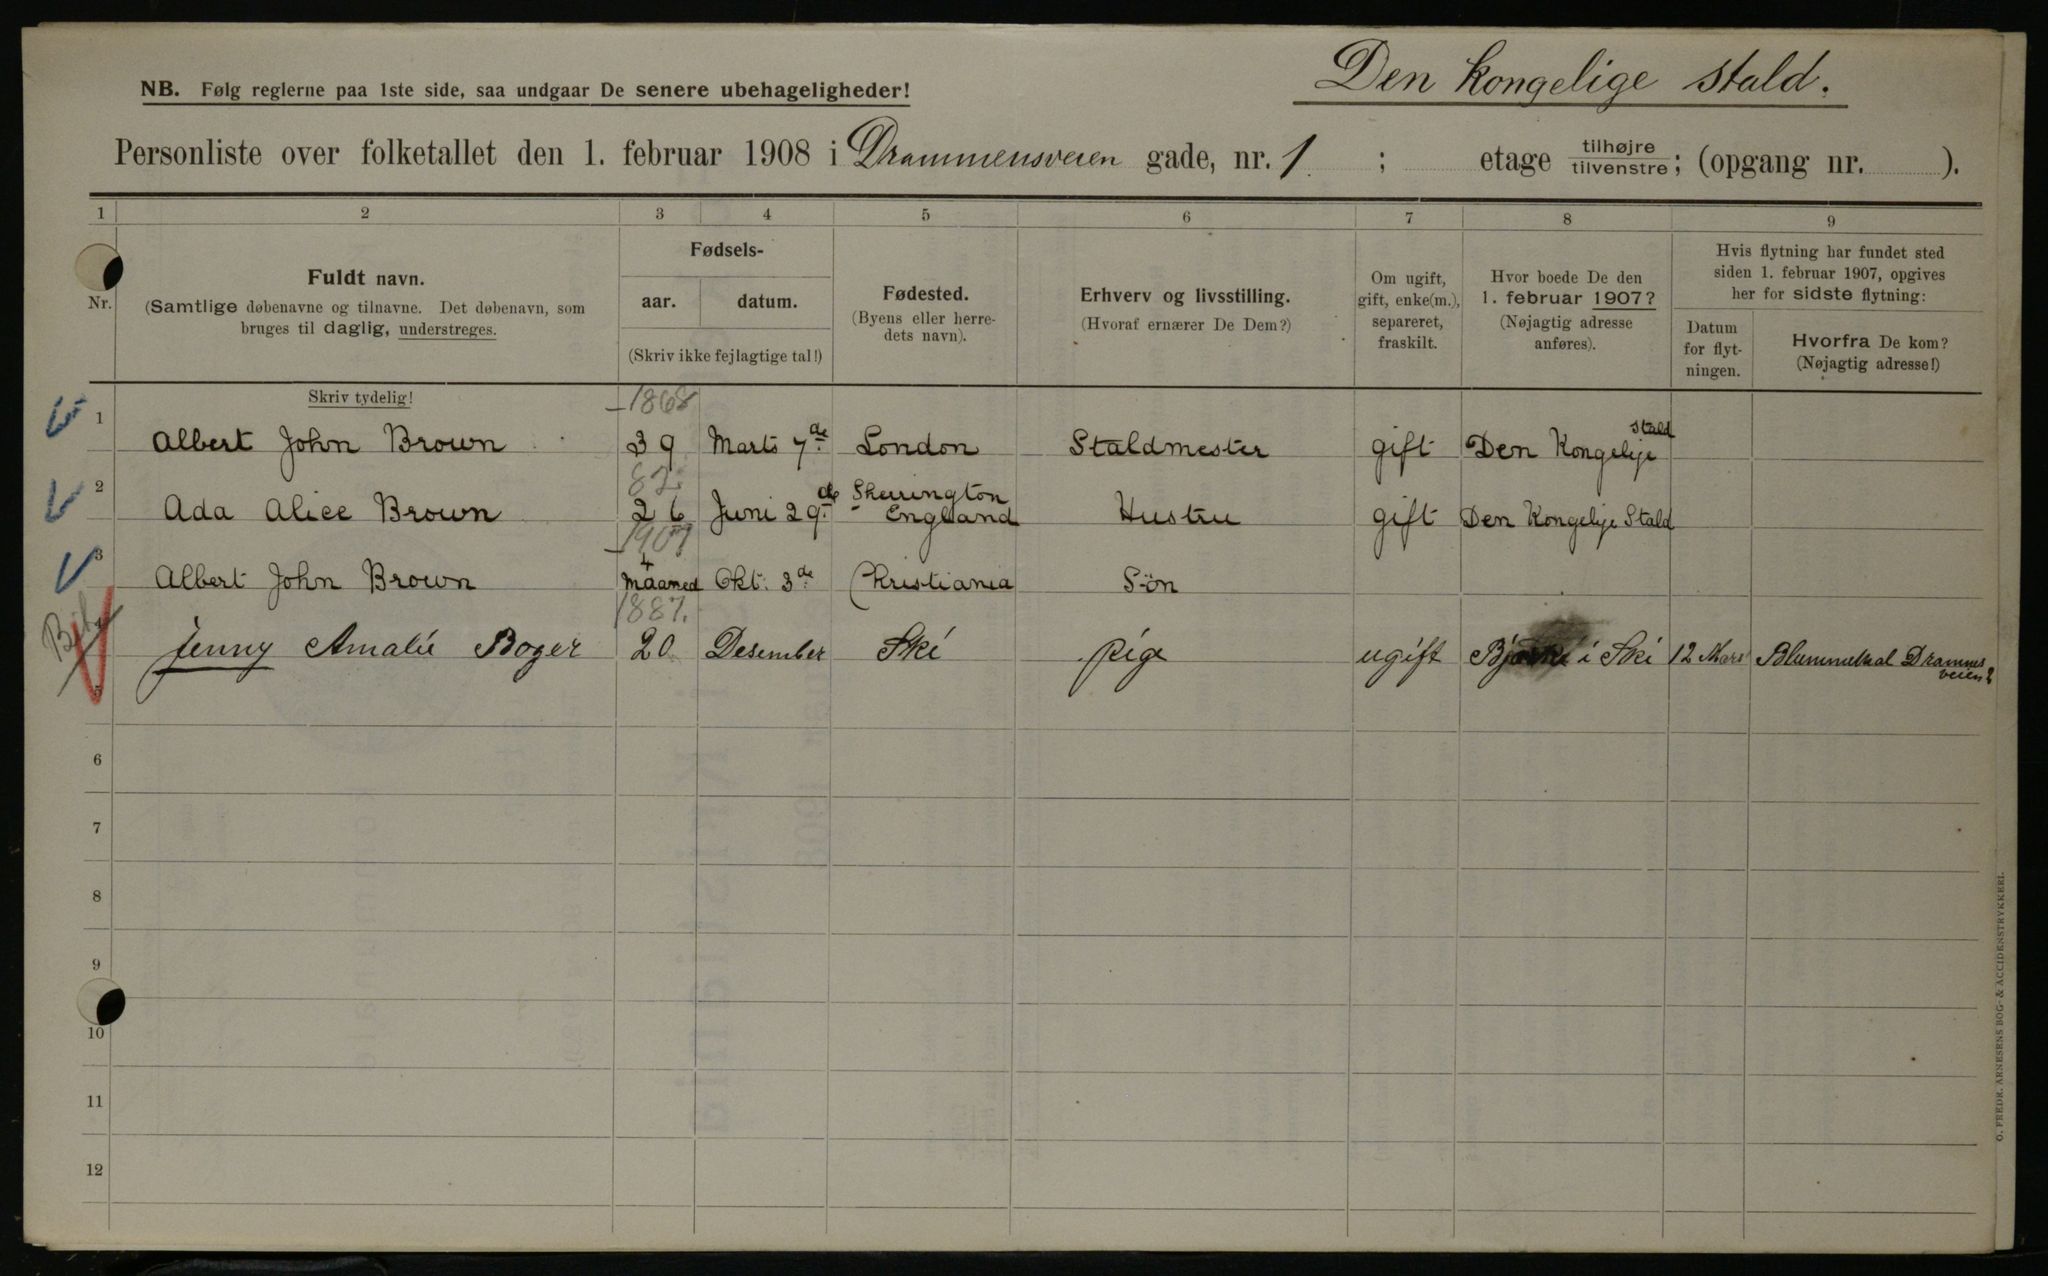 Den kongelige stald.
NB. Følg reglerne paa 1ste side, saa undgaar De senere ubehageligheder!
Personliste over folketallet den 1. februar 1908 i Drammensveien gade, nr. 1 ; etage tilhøjre tilvenstre; (opgang nr. ).
1 2 3 4 5 6 7 8 9
Nr.
Fuldt navn.
(Samtlige døbenavne og tilnavne. Det døbenavn, som
bruges til daglig, understreges.
Skriv tydelig!
Fødsels-
aar. datum.
(Skriv ikke fejlagtige tal!)
Fødested.
(Byens eller herre-
dets navn).
Erhverv og livsstilling.
(Hvoraf ernærer De Dem?)
Om ugift,
gift, enke(m.),
separeret,
fraskilt.
Hvor boede De den
1. februar 1907?
(Nøjagtig adresse
anføres).
Hvis flytning har fundet sted
siden 1. februar 1907, opgives
her for sidste flytning:
Datum
for flyt-
ningen.
Hvorfra De kom?
(Nøjagtig adresse!)
1868
1 Albert John Brown 39 Marts 7de London Staldmester gift Den Kongelije Stald
82.
2 Ada Alice Brown 26 Juni 29de England Hustru gift Den Kongelije Stald
1907
3 Albert John Brown 4 Maaned Okt. 3de Christiania Sön
1887.
Jenny Amalie Boger 20 Desember Ski pige ugift i Ski 12 Mars
5
6
7
8
9
10
11
12
O. FREDR. ARNESENS BOG- & ACCIDENSTRYKKERI.